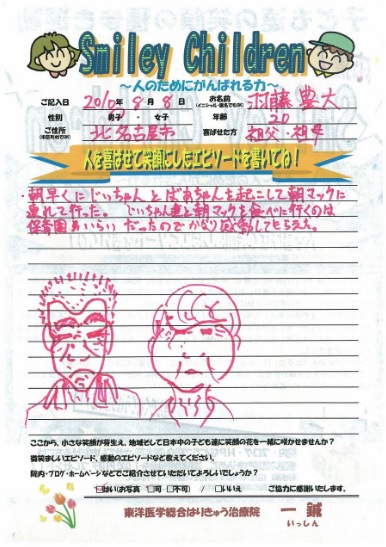 Smiley Children
～人のためにがんばれる力～
ご記入日 2010年 9月 8日 お名前 豊大
性別 男子・女子 年齢 20
ご住所 北名古屋市 喜ばせた方 祖父・祖母
人を喜ばせて笑顔にしたエピソードを書いてね！
・朝早くにじいちゃんとばあちゃんを起こして朝マックに
連れて行った。じいちゃん達と朝マックを食べに行くのは
保育園 いらいだったのでかなり感動してもらえた。
ここから、小さな笑顔が芽生え、地域そして日本中の子ども達に笑顔の花を一緒に咲かせませんか？
微笑ましいエピソード、感動のエピソードなど教えてください。
院内・ブログ・ホームページなどでご紹介させていただいてよろしいでしょうか？
はい(お写真 可 不可) / いいえ ご協力に感謝いたします。
東洋医学総合はりきゅう治療院 一鍼
いっしん